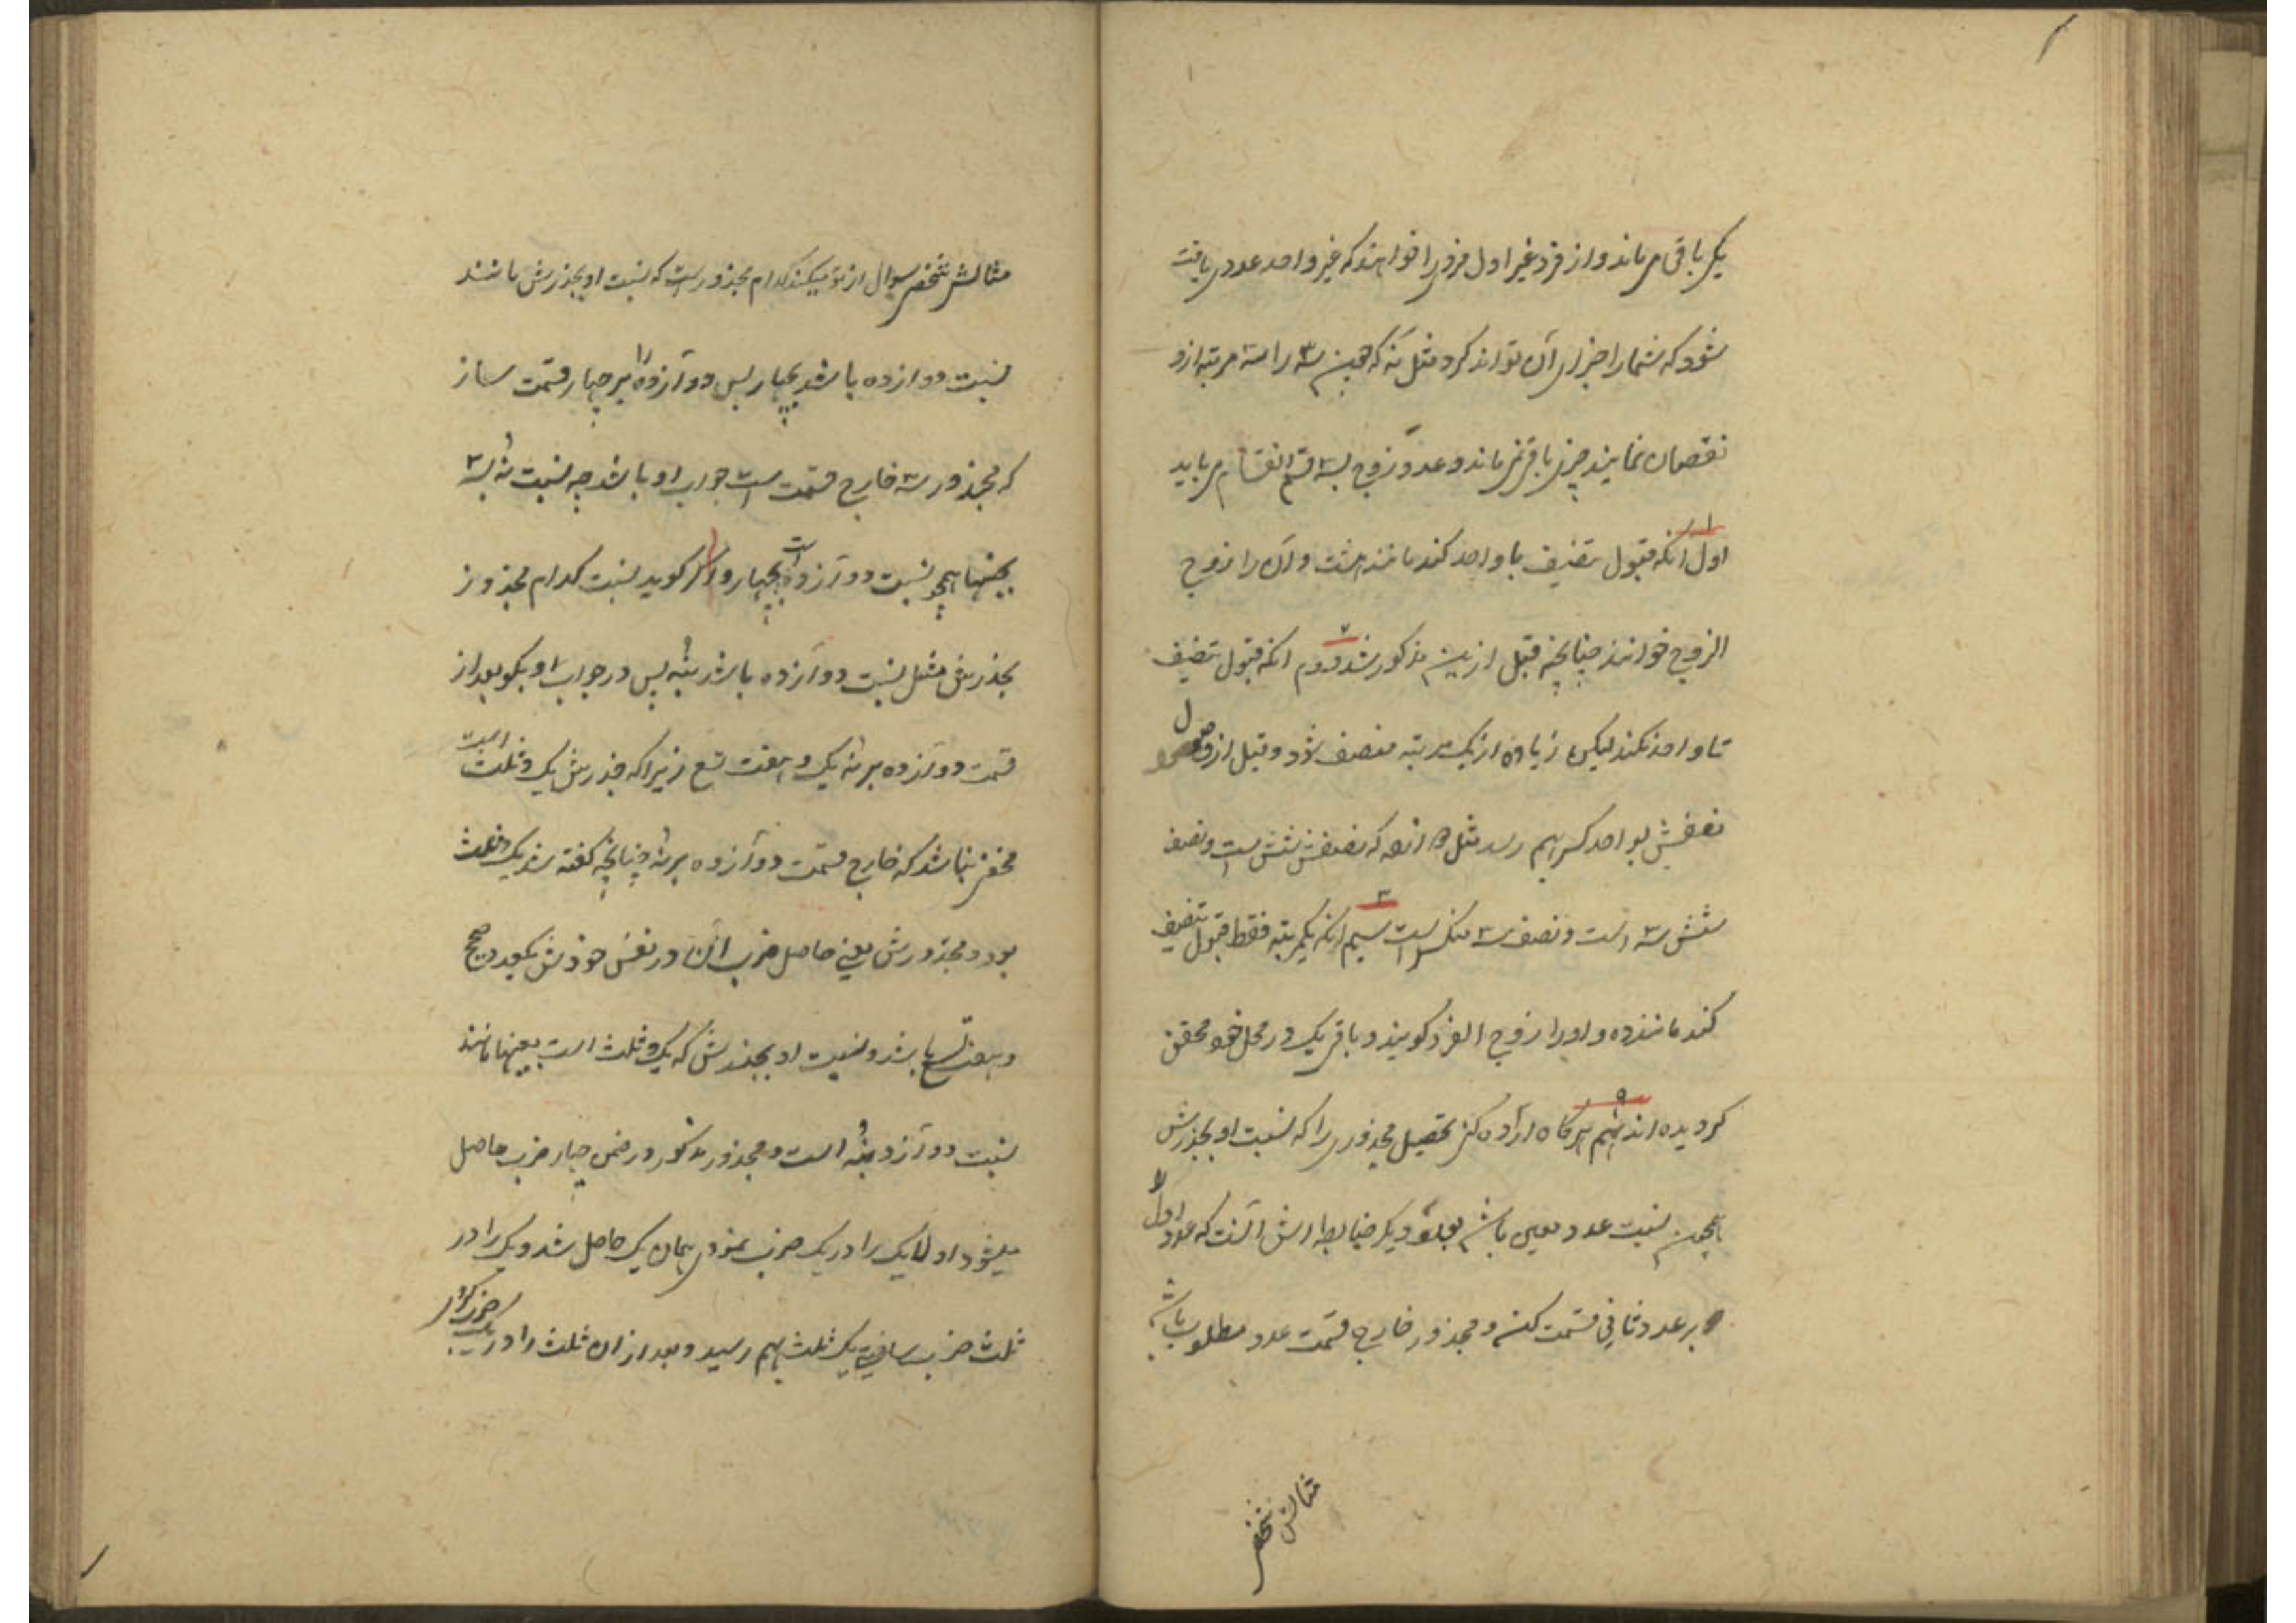 یکی باقی میماند و از فرد غیر اول فردی را خواهند که غیر واحد عددی یافت
شود که شمار اجزای آن تواند کرد مثل نه که همین سه را سه مرتبه ازو
نقصان نمایند چیزی باقی نمی ماند و عدد زوج بسه قسم انقسام می یابد
اول انکه قبول تنصیف با واحد کند مانند هشت و آن را زوج
الزوج خوانند چنانچه قبل ازین مذکور شد دوم انکه قبول تنصیف
تا واحد نکند لیکن زیاده از یک مرتبه منصف شود و قبل از وصول
تنصیفش بواحد کسر بهم رسد مثل ۱۲ که نصفش شش است و نصف
شش سه است و نصف سه منکسر است سیم انکه یکمرتبه فقط قبول تنصیف
کند مانند ده و او را زوج الفرد گویند و باقی یک در محل خود محقق
گردیده اند نهم هرگاه اراده کنی تحصیل مجذوری را که نسبت او بجذرش
همچون نسبت عدد معین باشد بعددی دیگر ضابطه اش آنست که عدد اول
بر عدد ثانی قسمت کنی و مجذور خارج قسمت عدد مطلوب باشد
مثالش شخصی
مثالش شخصی سوال از تو میکند کدام مجذور است که نسبت او بجذرش مانند
نسبت دوازده باشد بچهار پس دوازده را بر چهار قسمت ساز
که مجذور سه خارج قسمت است جواب او باشد چه نسبت نه بسه
بعینها همچو نسبت دوازده است بچهار و اگر گوید نسبت کدام مجذور
بجذرش مثل نسبت دوازده باشد بنه پس در جواب او بگو بعد از
قسمت دوازده بر نه یک و هفت تسع زیرا که جذرش یک و ثلث است
مخفی نباشد که خارج قسمت دوازده بر نه چنانچه گفته شد یک و ثلث
بود و مجذورش یعنی حاصل ضرب آن در نفس خودش یکعدد صحیح
و هفت تسع باشد و نسبت او بجذرش که یک و ثلث است بعینها مانند
نسبت دوازده بنه است و مجذور مذکور در ضمن چهار ضرب حاصل
میشود اولا یک را در یک ضرب نمودی همان یک حاصل شد و یک را در
ثلث ضرب ساختی یک ثلث بهم رسید و بعد از ان ثلث را در یک ضرب کردی